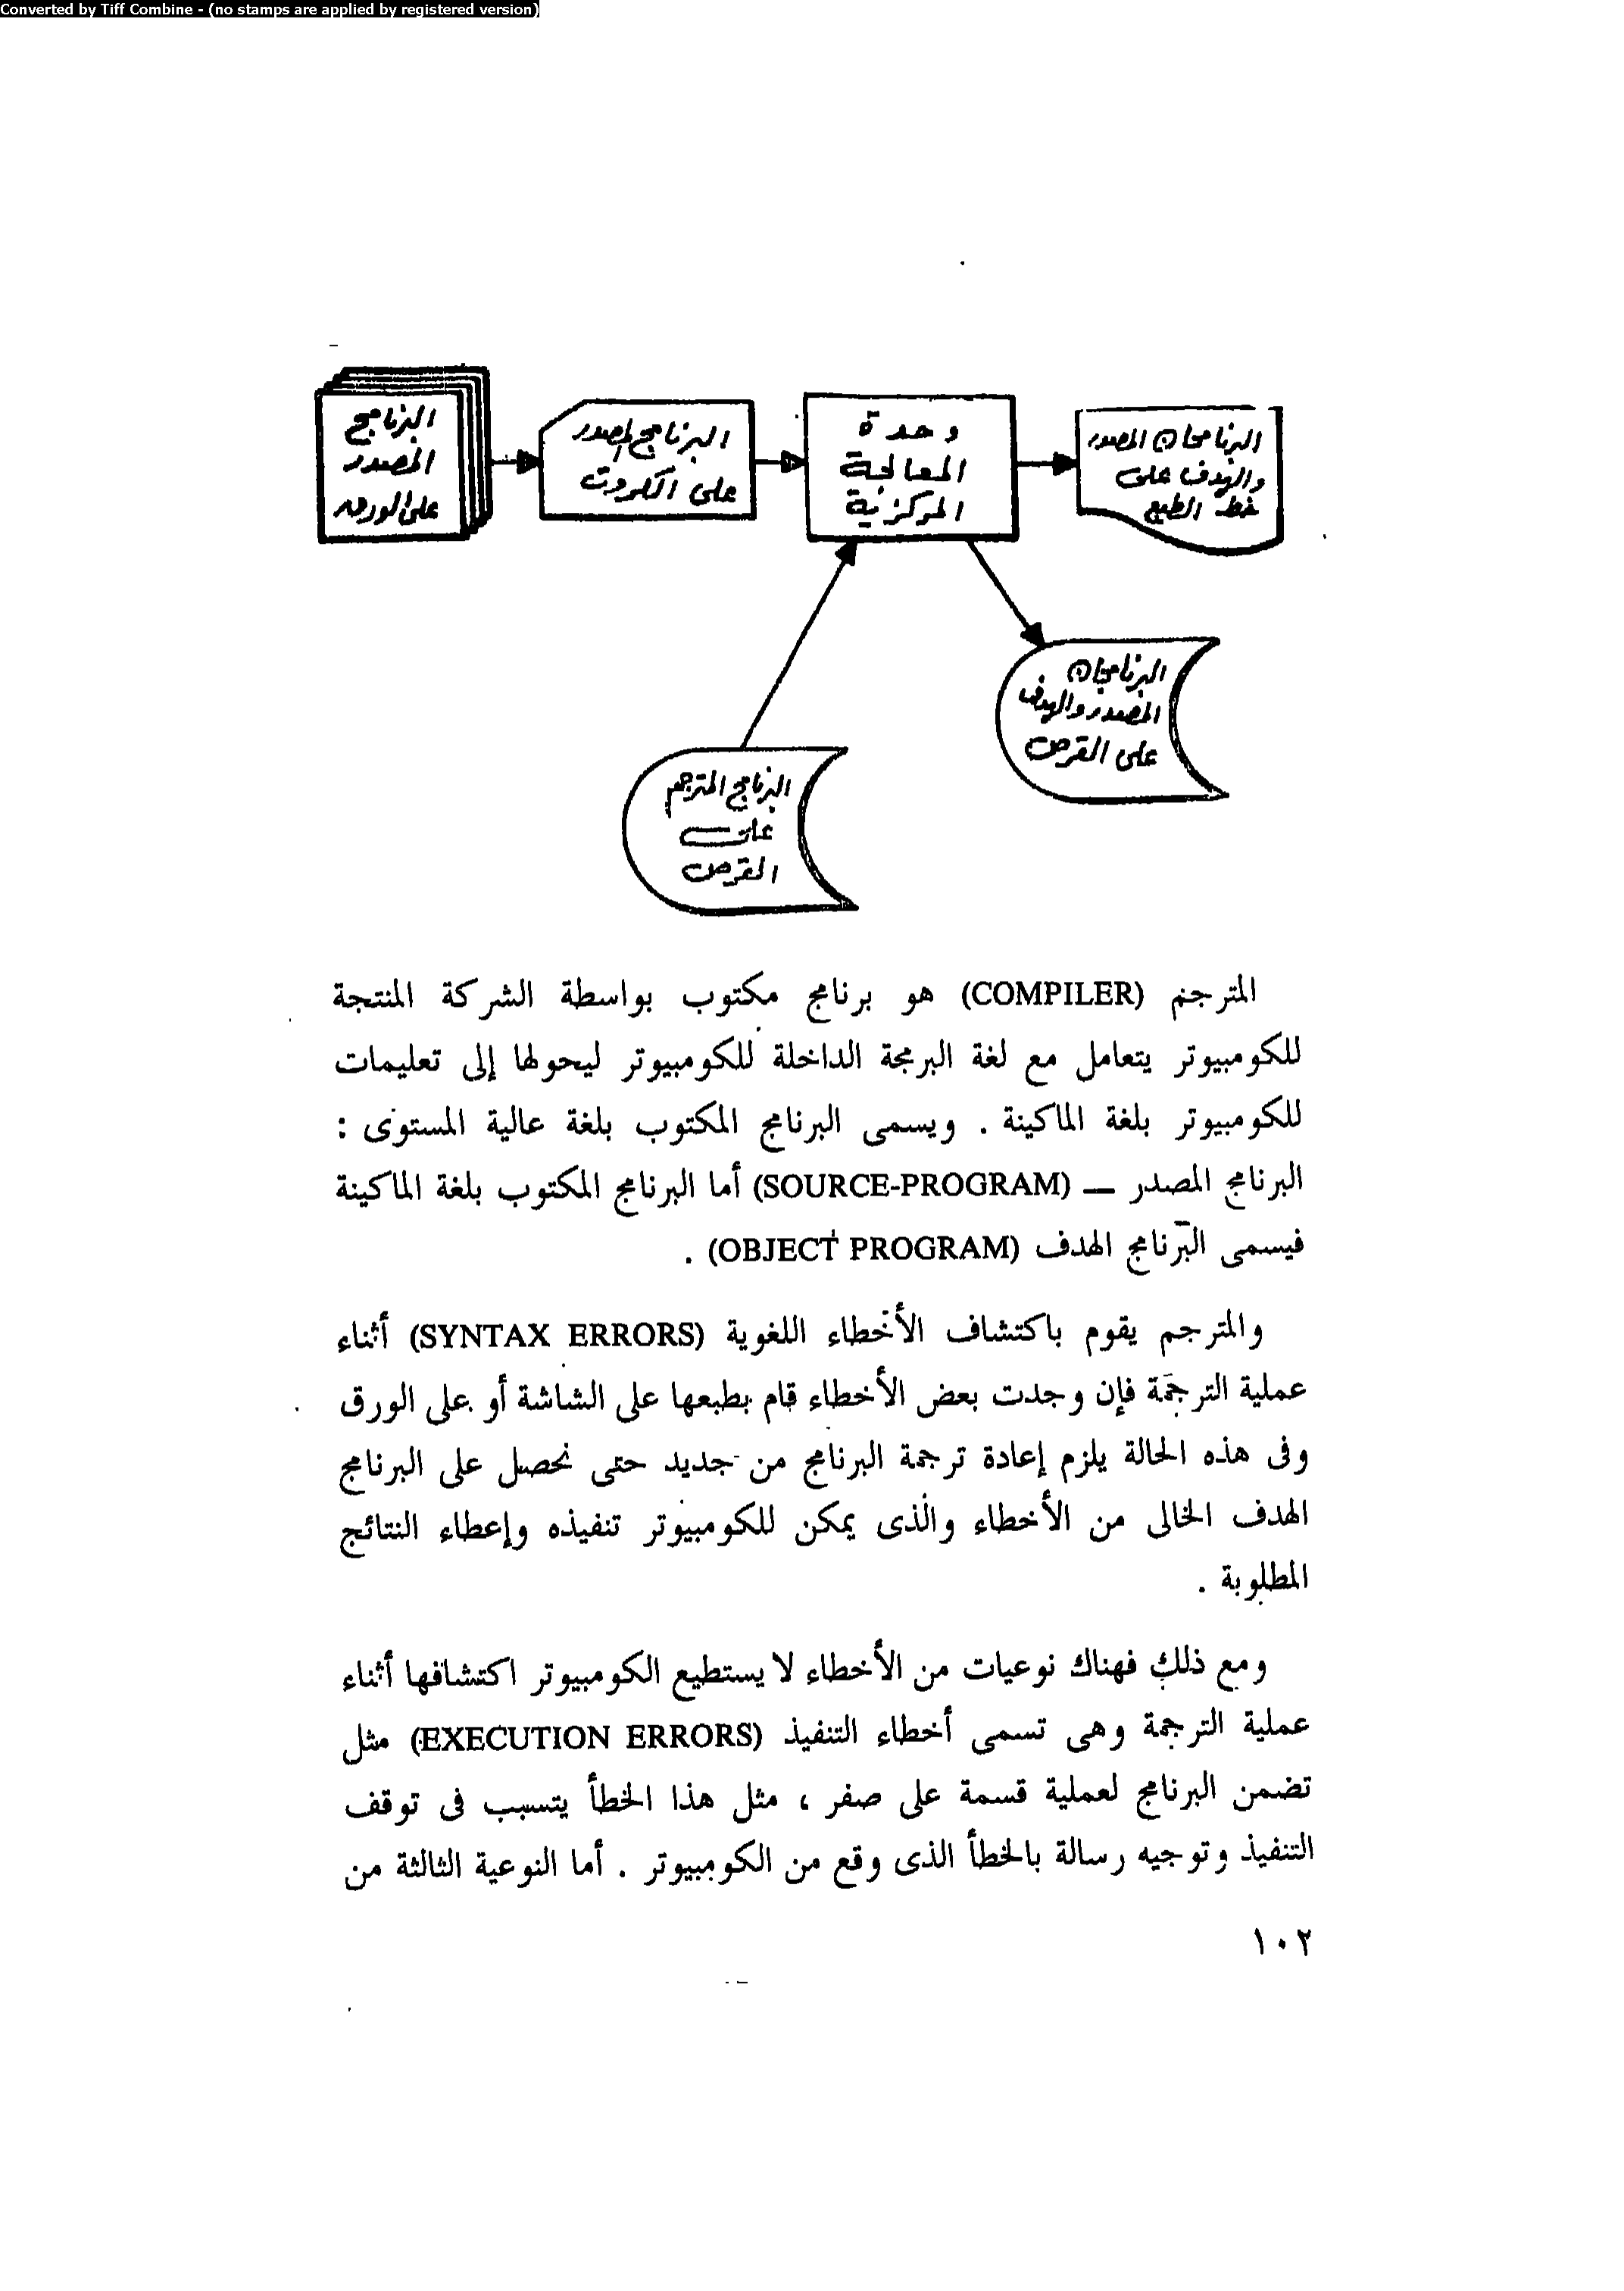 Converted by Tiff Combine - (no stamps are applied by registered version)
البرنامج
المصدر
على الورق
البرنامج المصدر
على الكروت
وحدة
المعالجة
المركزية
البرنامجان المصدر
والهدف على
خط الطبع
البرنامجان
المصدر والهدف
على القرص
البرنامج المترجم
على
القرص
المترجم (COMPILER) هو برنامج مكتوب بواسطة الشركة المنتجة
للكومبيوتر يتعامل مع لغة البرمجة الداخلة للكومبيوتر ليحولها إلى تعليمات
للكومبيوتر بلغة الماكينة . ويسمى البرنامج المكتوب بلغة عالية المستوى :
البرنامج المصدر — (SOURCE-PROGRAM) أما البرنامج المكتوب بلغة الماكينة
فيسمى البرنامج الهدف (OBJECT PROGRAM) .
والمترجم يقوم باكتشاف الأخطاء اللغوية (SYNTAX ERRORS) أثناء
عملية الترجمة فإن وجدت بعض الأخطاء قام بطبعها على الشاشة أو على الورق
وفى هذه الحالة يلزم إعادة ترجمة البرنامج من جديد حتى نحصل على البرنامج
الهدف الخالى من الأخطاء والذى يمكن للكومبيوتر تنفيذه وإعطاء النتائج
المطلوبة .
ومع ذلك فهناك نوعيات من الأخطاء لا يستطيع الكومبيوتر اكتشافها أثناء
عملية الترجمة وهى تسمى أخطاء التنفيذ (EXECUTION ERRORS) مثل
تضمن البرنامج لعملية قسمة على صفر ، مثل هذا الخطأ يتسبب فى توقف
التنفيذ وتوجيه رسالة بالخطأ الذى وقع من الكومبيوتر . أما النوعية الثالثة من
١٠٢